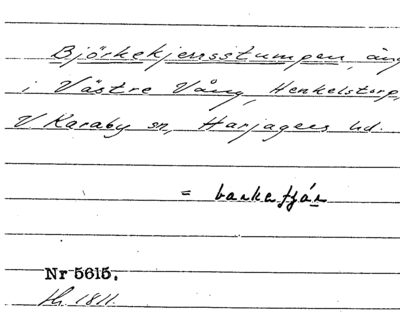 Björkekjerrsstumpen, äng
i Västre Vång, Henkelstorp,
V Karaby sn, Harjagers hd.
= barkatjár
Nr 5615.
1811.